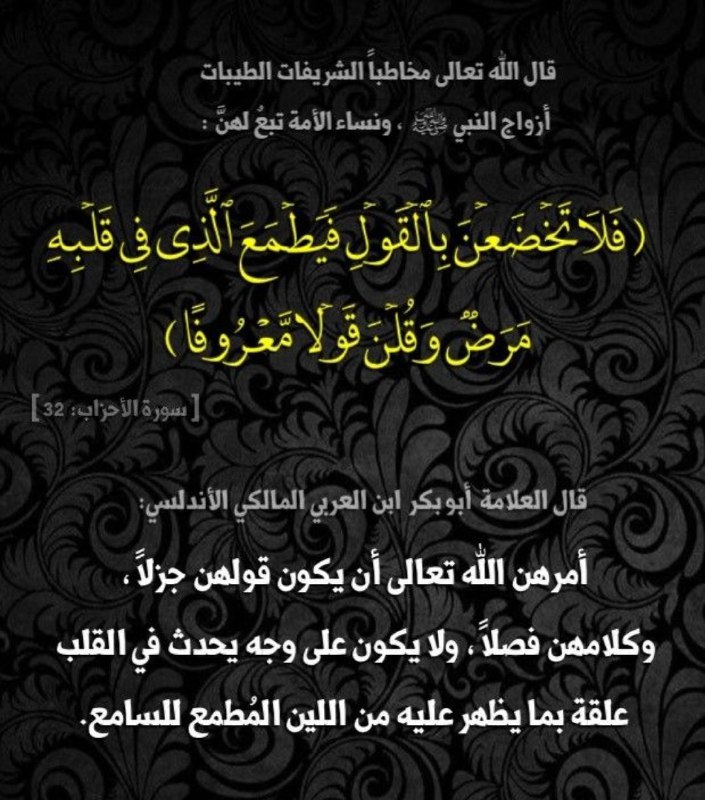 قال الله تعالى مخاطباً الشريفات الطيبات
أزواج النبي ﷺ ، ونساء الأمة تبعٌ لهنَّ :
(فَلَا تَخۡضَعۡنَ بِٱلۡقَوۡلِ فَيَطۡمَعَ ٱلَّذِى فِى قَلۡبِهِ
مَرَضٌ وَقُلۡنَ قَوۡلًا مَّعۡرُوفًا)
[سورة الأحزاب: 32]
قال العلامة أبو بكر ابن العربي المالكي الأندلسي:
أمرهن الله تعالى أن يكون قولهن جزلاً ،
وكلامهن فصلاً ، ولا يكون على وجه يحدث في القلب
علقة بما يظهر عليه من اللين المُطمع للسامع.